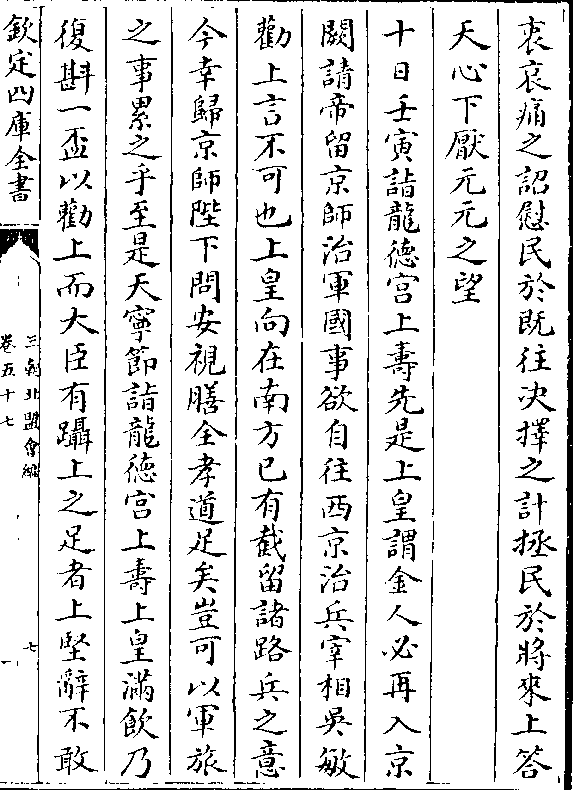 衷哀痛之詔慰民於既往决擇之計拯民於將來上答
天心下厭元元之望
十日壬寅詣龍德宫上壽先是上皇謂金人必再入京
闕請帝留京師治軍國事欲自往西京治兵宰相吳敏
勸上言不可也上皇向在南方已有截留諸路兵之意
今幸歸京師陛下問安視膳全孝道足矣豈可以軍旅
之事累之乎至是天寧節詣龍德宫上壽上皇滿飲乃
復斟一盃以勸上而大臣有躡上之足者上堅辭不敢
欽定四庫全書
三朝北盟會編
卷五十七
七